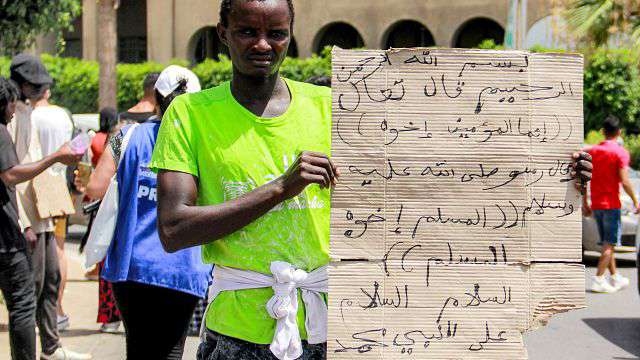 بسم الله الرحمن
الرحيم قال تعال
((إنما المؤمنين إخوه))
قال رسو صلى الله عليه
وسلام ((المسلم إخوه
المسلم))
السلام السلام
على النبي محمد
PR